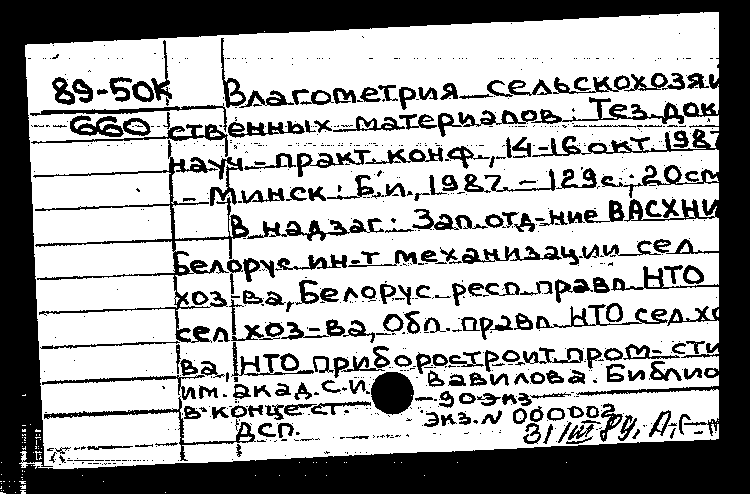 89-50К Влагометрия сельскохозяй
660 ственных материалов: Тез. док
науч.-практ. конф., 14-16 окт. 1987
- Минск: Б.и., 1987. - 129с.; 20см
В надзаг: Зап. отд-ние ВАСХНИ
Белорус. ин-т механизации сел.
хоз-ва, Белорус. респ. правл. НТО
сел. хоз-ва, Обл. правл. НТО сел. хо
ва, НТО приборостроит. пром-сти
им. акад. С.И. Вавилова. Библио
в конце ст. 90экз
ДСП. экз. N 000002
31/III 89,